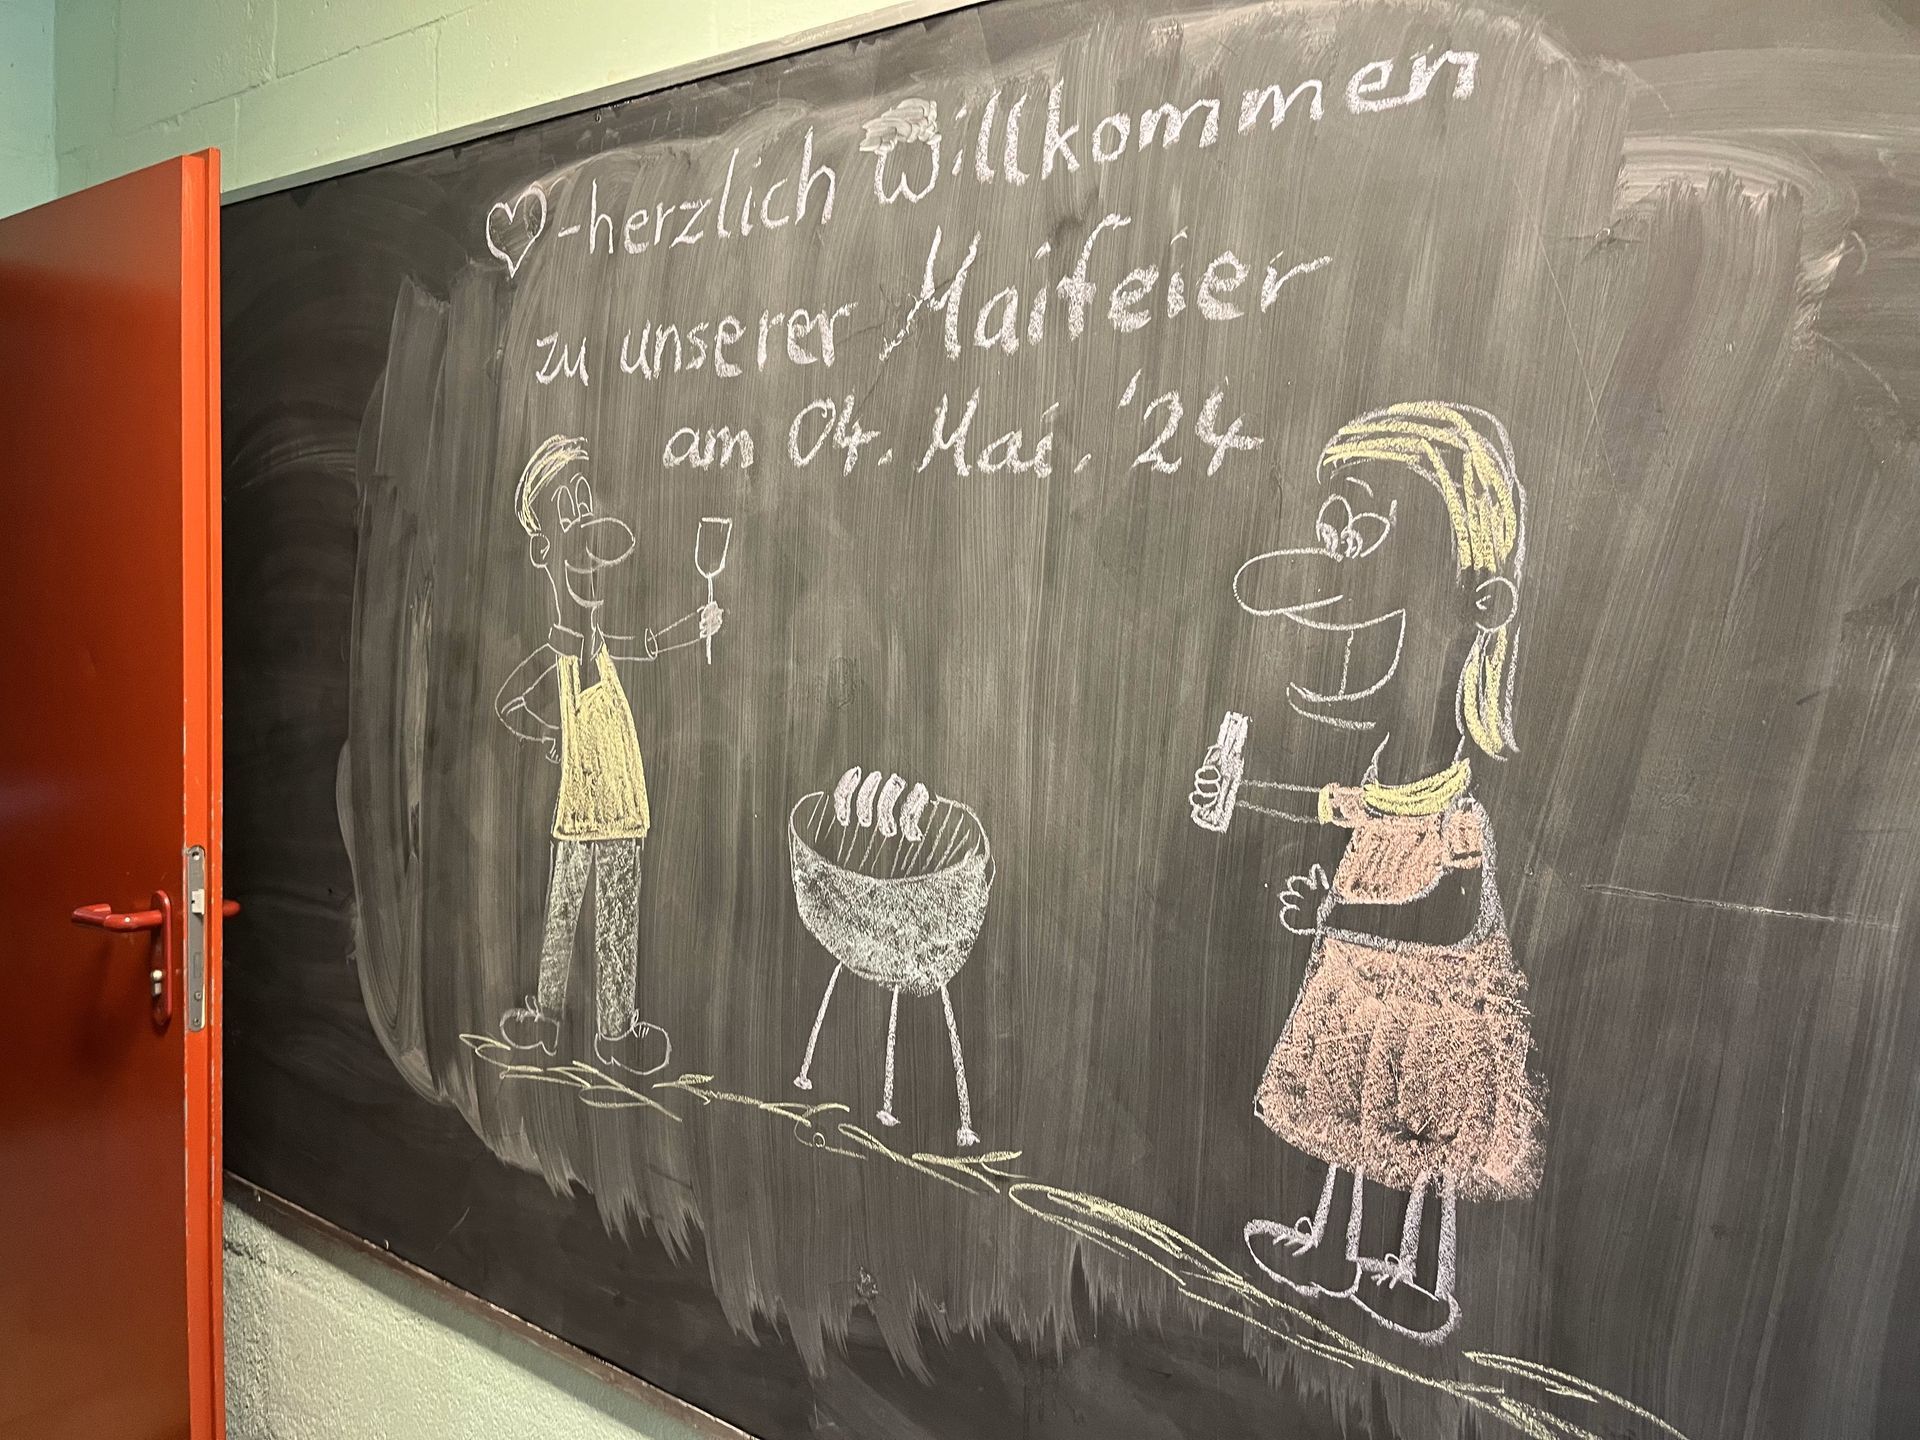 ♡-herzlich Willkommen
zu unserer Maifeier
am 04. Mai. '24